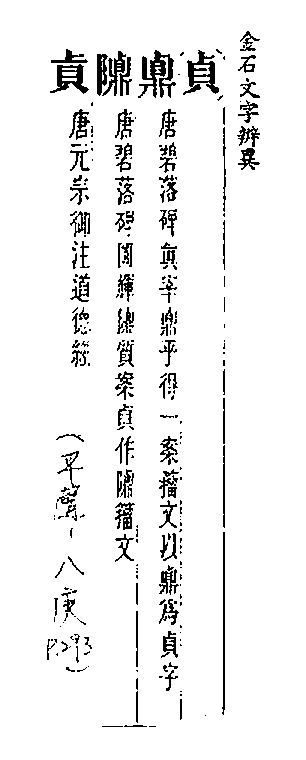 金石文字辨異
貞
鼎 唐碧落碑真宰鼎乎得一案籀文以鼎為貞字
唐碧落碑質案貞作籀文
貞 唐元宗御注道德經
(平聲-八庚
P.293)